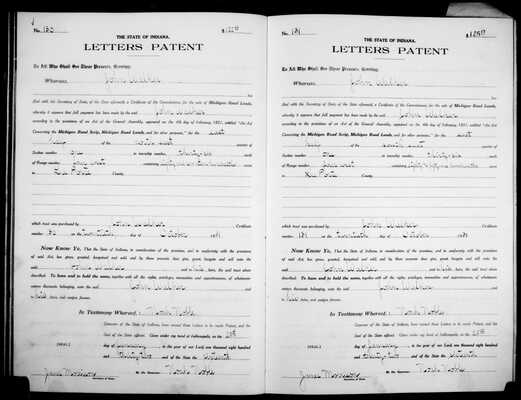 No. 130
THE STATE OF INDIANA.
LETTERS PATENT
To All Who Shall See These Presents, Greeting:
Whereas, John Walker
has
filed with the Secretary of State, of the State aforesaid, a Certificate of the Commissioner, for the sale of Michigan Road Lands,
whereby it appears that full payment has been made by the said John Walker
according to the provisions of an Act of the General Assembly, approved on the 4th day of February, 1831, entitled "An Act
Concerning the Michigan Road Scrip, Michigan Road Lands, and for other purposes," for the East
half of the North East quarter of
Section number One in township number Thirty six north
of Range number four west containing
in La Porte
which tract was purchased by John Walker Certificate
number 130 on Twentieth day of October 1831
Now Know Ye, That the State of Indiana, in consideration of the premises, and in conformity with the provisions
of said Act, has granted, bargained and sold, and by these presents does give, grant, bargain and sell unto the
said John Walker and to his heirs, the said tract above
described. To have and to hold the same, together with all the rights, privileges, immunities and appurtenances, of whatsoever
nature thereunto belonging, unto the said John Walker and
to his heirs, and assigns forever.
In Testimony Whereof, I Noah Noble
Governor of the State of Indiana, have caused these Letters to be made Patent, and the
Seal of the State affixed. Given under my hand at Indianapolis, on the 25th
(SEAL) day of January in the year of our Lord one thousand eight hundred
and thirty two and of the State the sixteenth
James Morrison By the Governor Noah Noble
Secretary of State
No. 131
THE STATE OF INDIANA.
LETTERS PATENT
To All Who Shall See These Presents, Greeting:
Whereas, John Walker
has
filed with the Secretary of State, of the State aforesaid, a Certificate of the Commissioner, for the sale of Michigan Road Lands,
whereby it appears that full payment has been made by the said John Walker
according to the provisions of an Act of the General Assembly, approved on the 4th day of February, 1831, entitled "An Act
Concerning the Michigan Road Scrip, Michigan Road Lands, and for other purposes," for the West
half of the South East quarter of
Section number One in township number Thirty six north
of Range number four west containing
in La Porte
which tract was purchased by John Walker Certificate
number 131 on Twentieth day of October 1831
Now Know Ye, That the State of Indiana, in consideration of the premises, and in conformity with the provisions
of said Act, has granted, bargained and sold, and by these presents does give, grant, bargain and sell unto the
said John Walker and to his heirs, the said tract above
described. To have and to hold the same, together with all the rights, privileges, immunities and appurtenances, of whatsoever
nature thereunto belonging, unto the said John Walker and
to his heirs, and assigns forever.
In Testimony Whereof, I Noah Noble
Governor of the State of Indiana, have caused these Letters to be made Patent, and the
Seal of the State affixed. Given under my hand at Indianapolis, on the 25th
(SEAL) day of January in the year of our Lord one thousand eight hundred
and thirty two and of the State the sixteenth
James Morrison By the Governor Noah Noble
Secretary of State